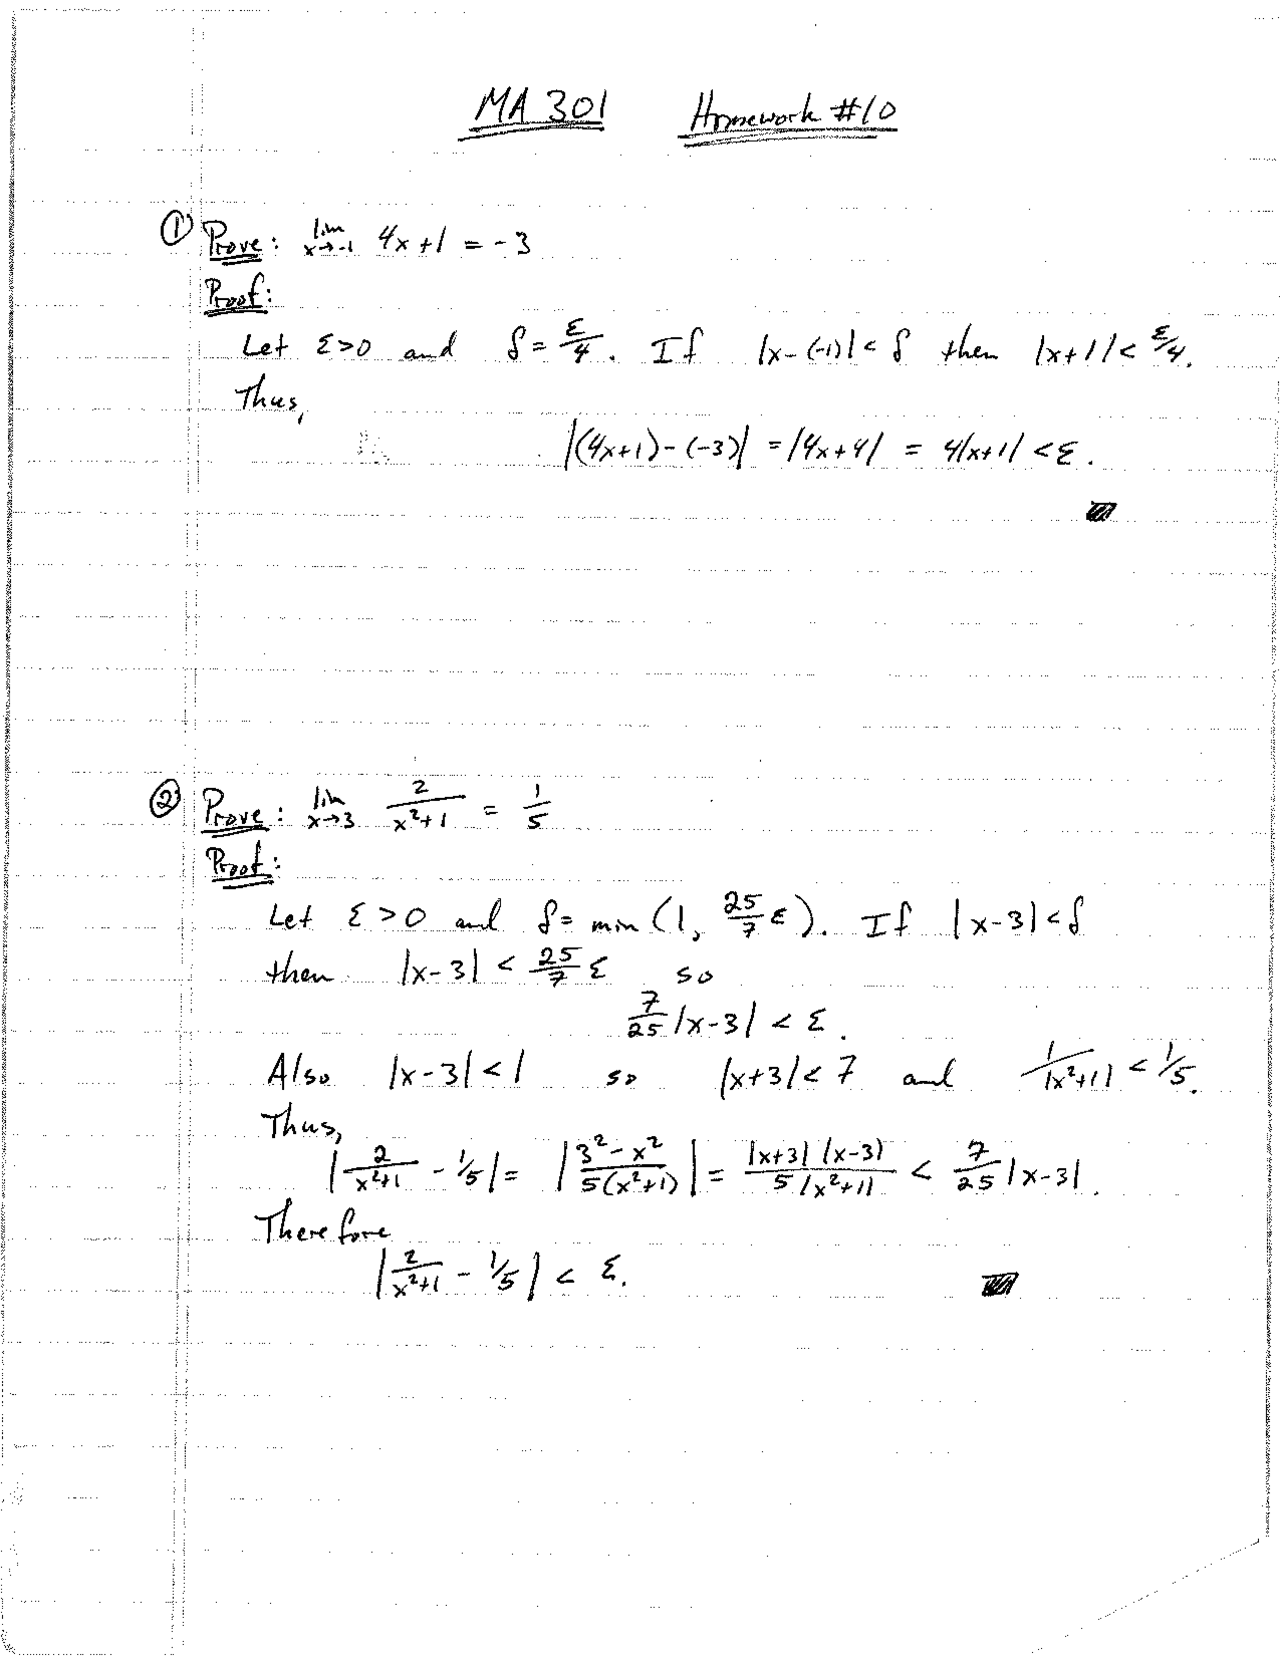 MA 301 Homework #10
① Prove: lim x→-1 4x+1 = -3
Proof:
Let ε>0 and δ = ε/4. If |x-(-1)| < δ then |x+1| < ε/4.
Thus,
|(4x+1)-(-3)| = |4x+4| = 4|x+1| < ε.
② Prove: lim x→3 2/(x²+1) = 1/5
Proof:
Let ε>0 and δ = min(1, 25/7 ε). If |x-3| < δ
then |x-3| < 25/7 ε so
7/25 |x-3| < ε.
Also |x-3| < 1 so |x+3| < 7 and 1/|x²+1| < 1/5.
Thus,
|2/(x²+1) - 1/5| = |(3²-x²)/(5(x²+1))| = |x+3| |x-3| / 5|x²+1| < 7/25 |x-3|.
Therefore
|2/(x²+1) - 1/5| < ε.